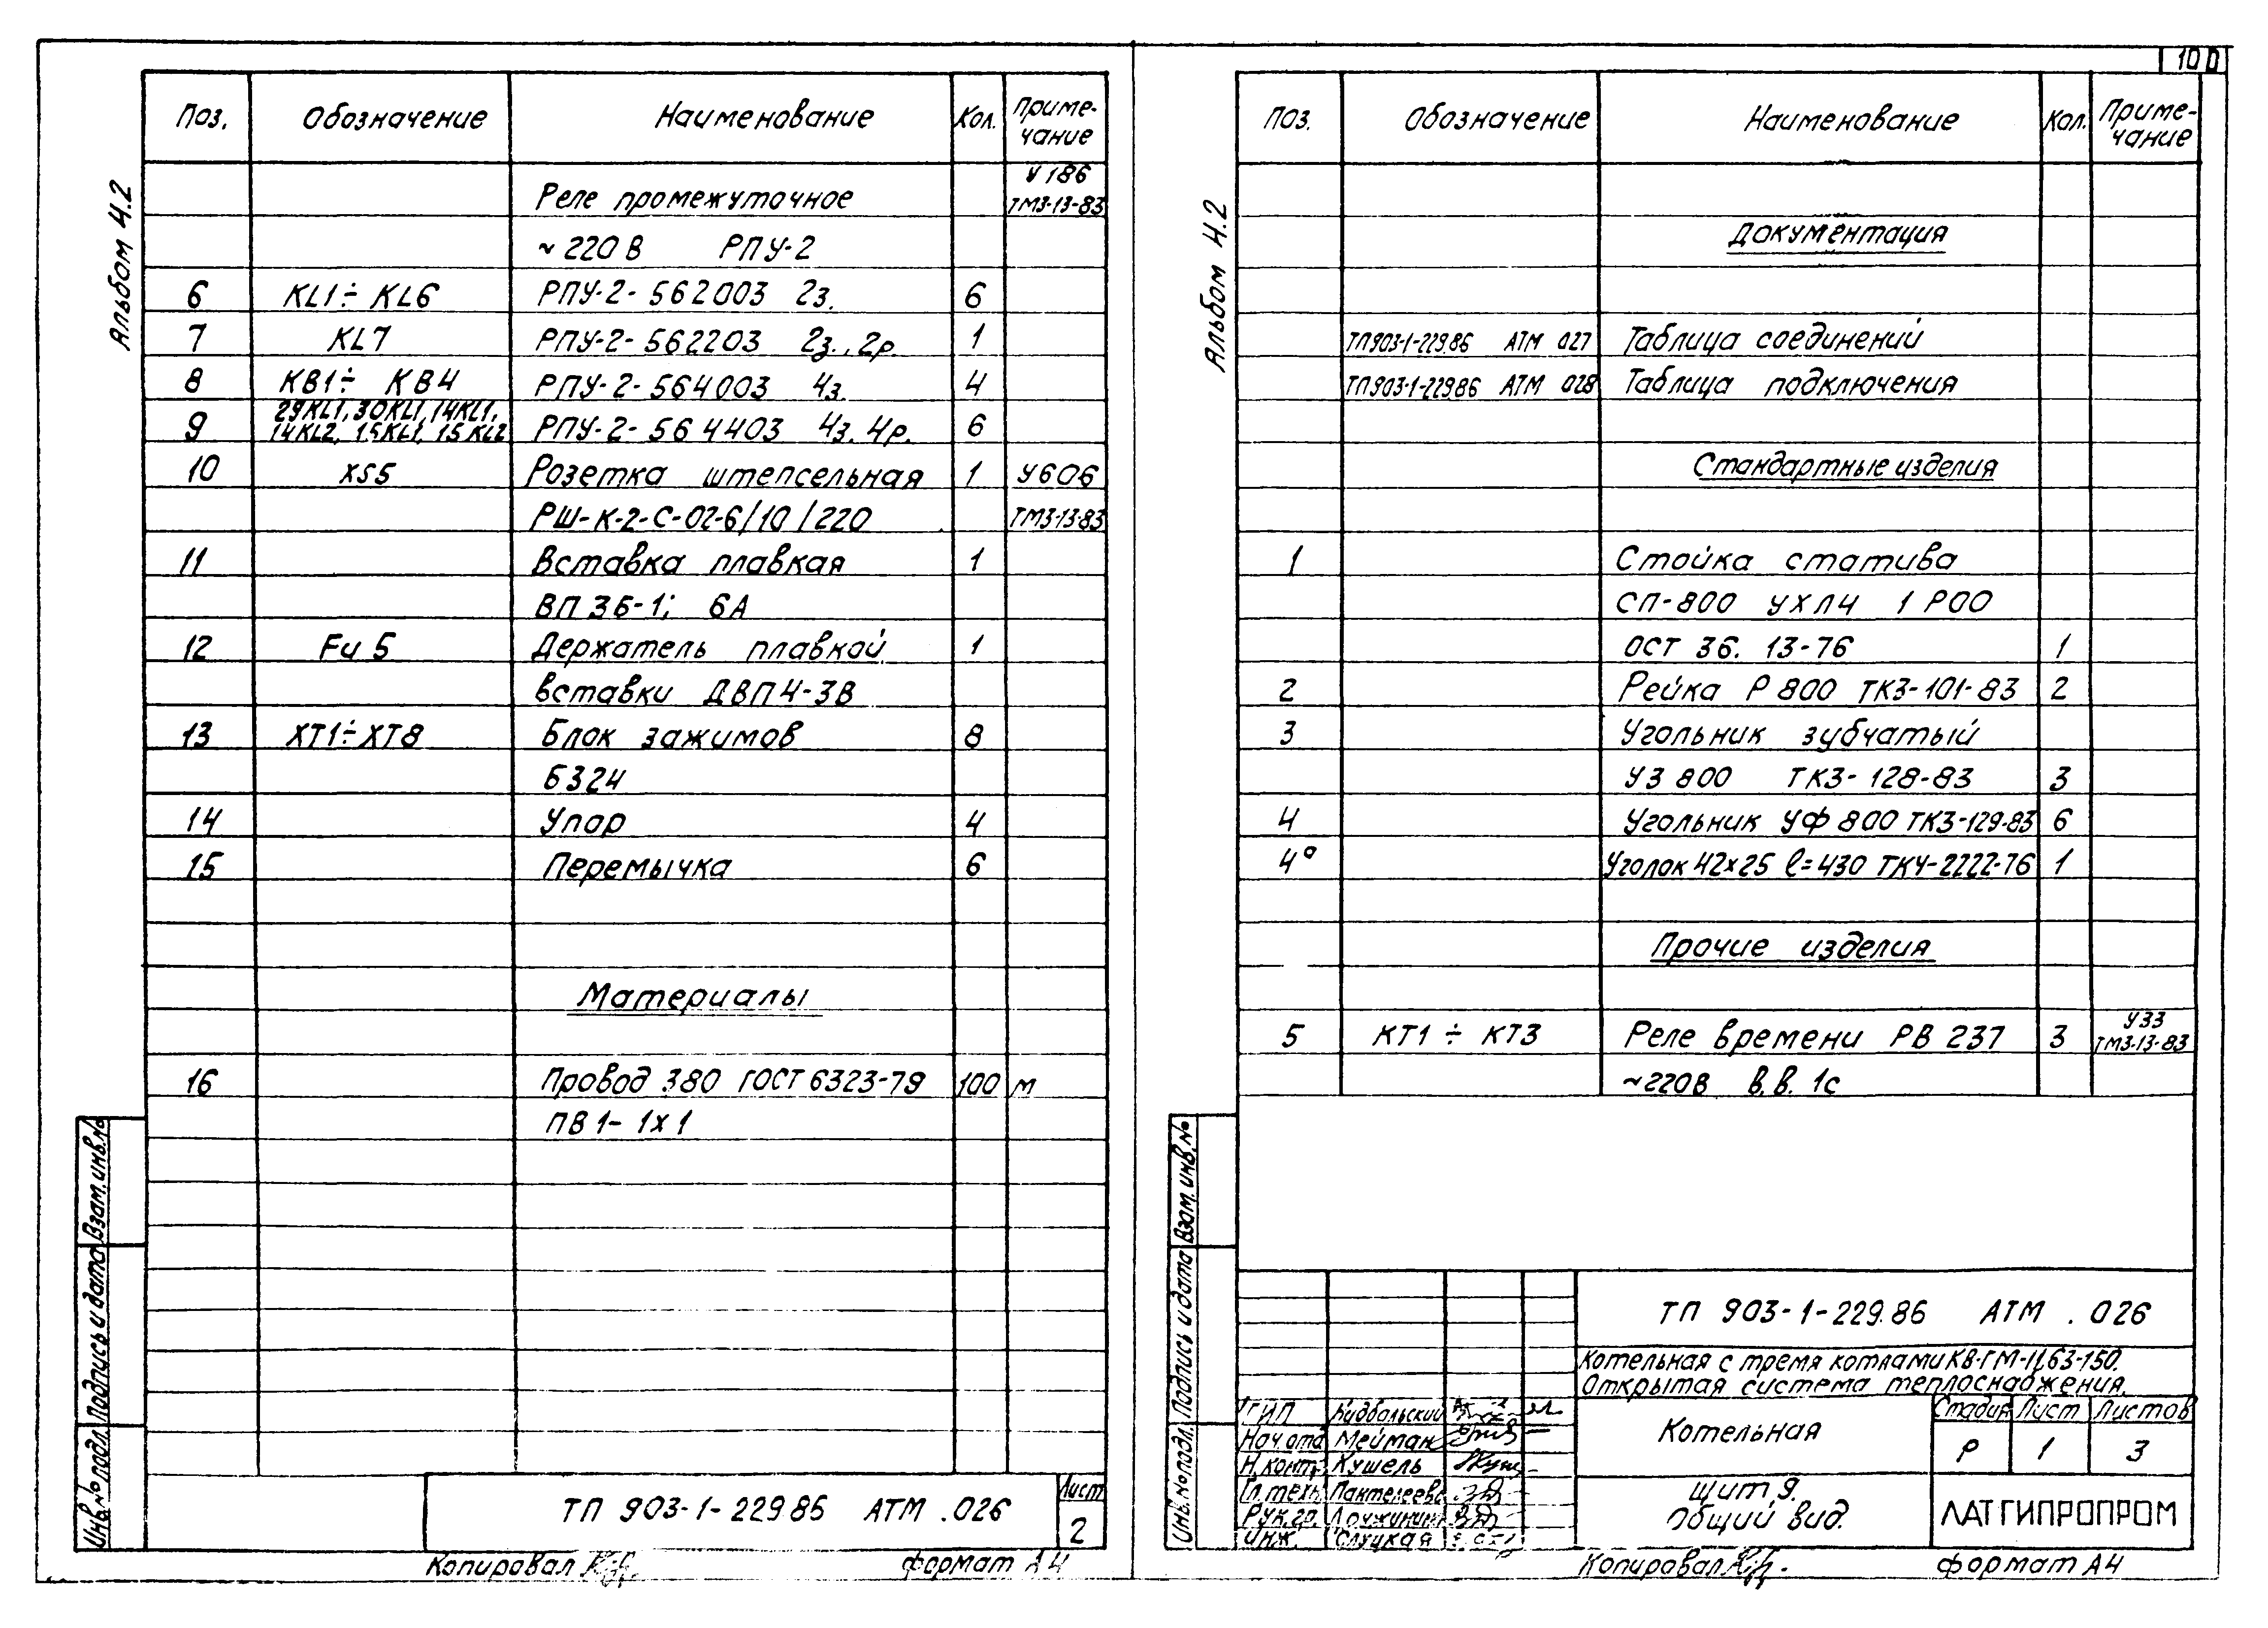 Альбом 4.2
Поз. Обозначение Наименование Кол. Примечание
Реле промежуточное У 186 ТМ3-13-83
~ 220 В РПУ-2
6 KL1÷ KL6 РПУ-2-562003 2з. 6
7 KL7 РПУ-2-562203 2з., 2р. 1
8 КВ1÷ КВ4 РПУ-2-564003 4з. 4
9 29KL1, 30KL1, 14KL1, 14KL2, 15KL1, 15KL2 РПУ-2-564403 4з. 4р. 6
10 XS5 Розетка штепсельная 1 У606
РШ-К-2-С-02-6/10/220 ТМ3-13-83
11 Вставка плавкая 1
ВП3Б-1; 6А
12 Fu 5 Держатель плавкой 1
вставки ДВП4-3В
13 ХТ1÷ХТ8 Блок зажимов 8
Б324
14 Упор 4
15 Перемычка 6
Материалы
16 Провод 380 ГОСТ 6323-79 100 м
ПВ1- 1х1
Взам. инв. №
Подпись и дата
Инв. № подл.
ТП 903-1-229.86 АТМ .026
Лист
2
Копировал
формат А4
10
Альбом 4.2
Поз. Обозначение Наименование Кол. Примечание
Документация
ТП903-1-229.86 АТМ 027 Таблица соединений
ТП903-1-229.86 АТМ 028 Таблица подключения
Стандартные изделия
1 Стойка статива
СП-800 УХЛ4 1Р00
ОСТ 36. 13-76 1
2 Рейка Р 800 ТК3-101-83 2
3 Угольник зубчатый
УЗ 800 ТК3-128-83 3
4 Угольник УФ 800 ТК3-129-83 6
4а Уголок 42х25 l=430 ТКУ-2222-76 1
Прочие изделия
5 КТ1 ÷ КТ3 Реле времени РВ 237 3 У33 ТМ3-13-83
~220В в.в. 1с
Взам. инв. №
Подпись и дата
Инв. № подл.
ТП 903-1-229.86 АТМ .026
Котельная с тремя котлами КВ-ГМ-11,63-150.
Открытая система теплоснабжения.
ГИП
Нач. отд. Мейман
Н. контр. Кушель
Гл. техн. Пантелеева
Рук. гр.
Инж. Слуцкая
Котельная
Стадия Лист Листов
Р 1 3
Щит 9.
Общий вид.
ЛАТГИПРОПРОМ
Копировал
формат А4